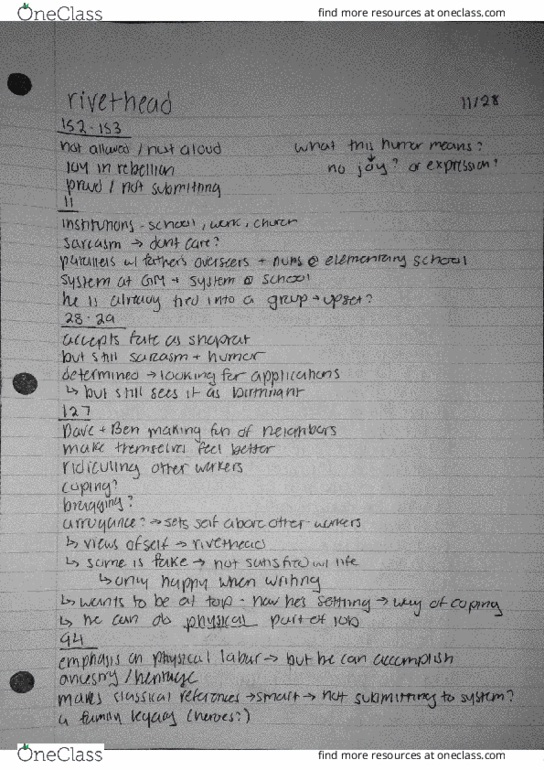 OneClass
find more resources at oneclass.com
rivethead 11/28
152-153
not allowed / not aloud what this humor means?
joy in rebellion no joy? or expression?
proud / not submitting
11
institutions - school, work, church
sarcasm → dont care?
parallels w/ fathers overseers + nuns @ elementary school
system at GM + system @ school
he is already tied into a group → upset?
28-29
accepts fate as shoprat
but still sarcasm + humor
determined → looking for applications
↳ but still sees it as birthright
127
Dave + Ben making fun of neighbors
make themselves feel better
ridiculing other workers
coping?
bragging?
arrogance? → sets self above other workers
↳ views of self → rivethead
↳ some is fake → not satisfied w/ life
↳ only happy when writing
↳ wants to be at top - now hes settling → way of coping
↳ he can do physical part of job
94
emphasis on physical labor → but he can accomplish
ancestry / heritage
makes classical references → smart → not submitting to system?
a family legacy (heroes?)
OneClass
find more resources at oneclass.com